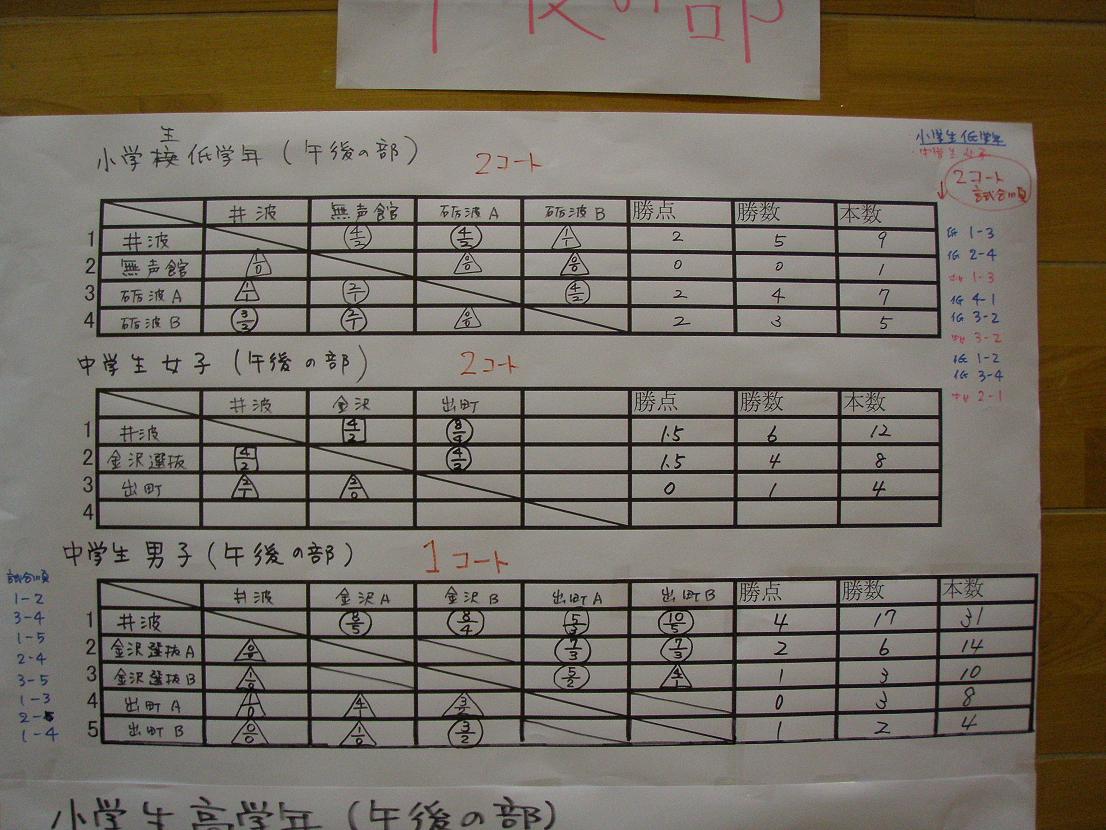 午後の部
小学生低学年(午後の部) 2コート
井波 無声館 砺波A 砺波B 勝点 勝数 本数
1 井波 4/2 4/2 1/1 2 5 9
2 無声館 1/0 0/0 0/0 0 0 1
3 砺波A 1/1 2/1 4/2 2 4 7
4 砺波B 3/2 2/1 0/0 2 3 5
中学生女子(午後の部) 2コート
井波 金沢 出町 勝点 勝数 本数
1 井波 4/2 8/4 1.5 6 12
2 金沢選抜 4/2 4/2 1.5 4 8
3 出町 2/1 2/0 0 1 4
4
中学生男子(午後の部) 1コート
井波 金沢A 金沢B 出町A 出町B 勝点 勝数 本数
1 井波 8/5 8/4 5/3 10/5 4 17 31
2 金沢選抜A 7/3 7/3 2 6 14
3 金沢選抜B 1/0 5/2 4/1 1 3 10
4 出町A 4/1 3/2 0 3 8
5 出町B 0/0 1/0 3/2 1 2 4
小学生低学年
中学生女子
2コート
試合順
低 1-3
低 2-4
中女 1-3
低 4-1
低 3-2
中女 3-2
低 1-2
低 3-4
中女 2-1
試合順
1-2
3-4
1-5
2-4
3-5
1-3
2-5
1-4
小学生高学年(午後の部)